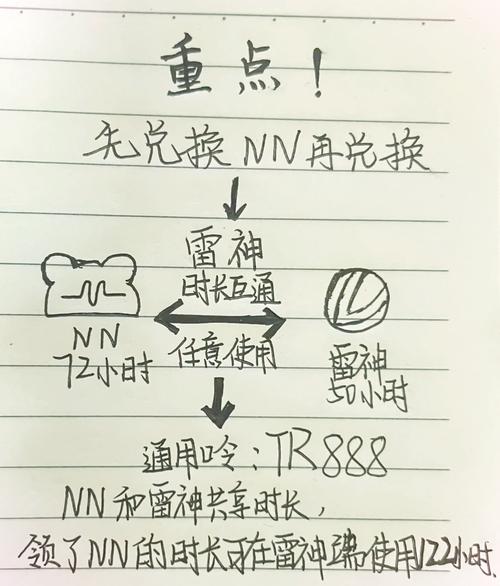 重点！
先兑换NN再兑换
雷神
时长互通
任意使用
NN
72小时
雷神
50小时
通用呤：TR888
NN和雷神共享时长，
领了NN的时长可在雷神端使用122小时.